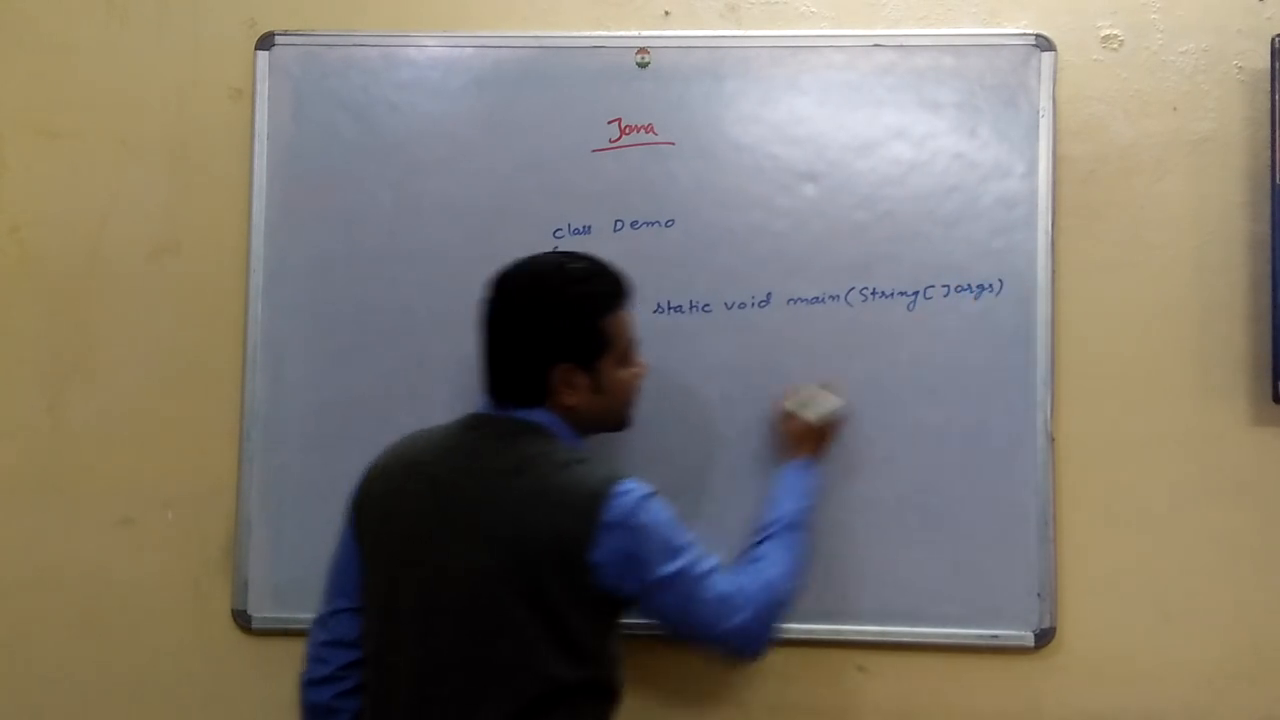 Java
class Demo
{
static void main(String[] args)